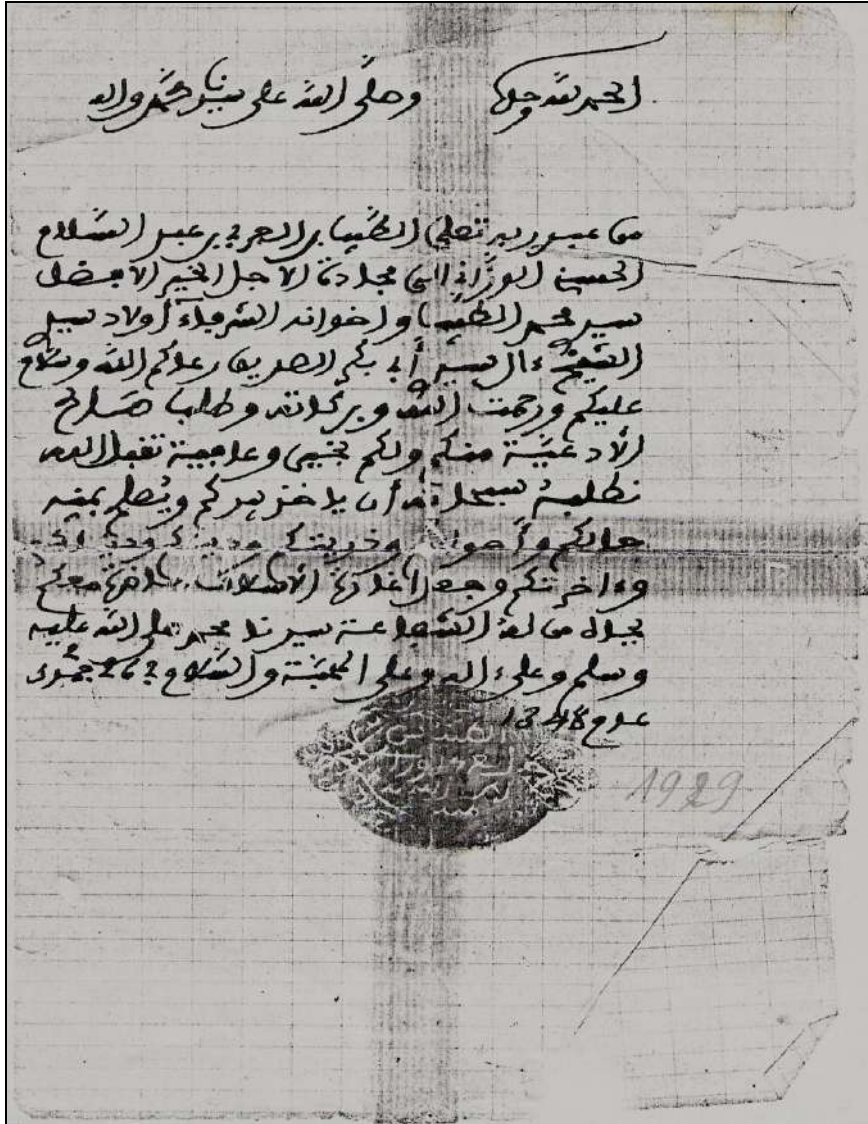 الحمد لله وحده وصلى الله على سيدنا محمد وآله
من عبد ربه تعلى الطيب بن العربي بن عبد السلام
الحسني الوزاني إلى مجادة الأجل الخير الأفضل
سيدي محمد الطيب وإخوانه الشرفاء أولاد سيدي
الشيخ ءال سيدي أبي بكر الصديق رعاكم الله وسلام
عليكم ورحمت الله وبركاته وطلب صالح
الأدعية منكم ولكم بخير وعافية تقبل الله
نطلبه سبحانه أن يأخذ بيدكم ويصلح بمنه
حالكم وذريتكم
وءاخرتكم وجعل معكم
بجاه من له الشفاعة سيدنا محمد صلى الله عليه
وسلم وعلى ءاله وعلى المحبة والسلام في 26 جمدى
عام 1348
1929